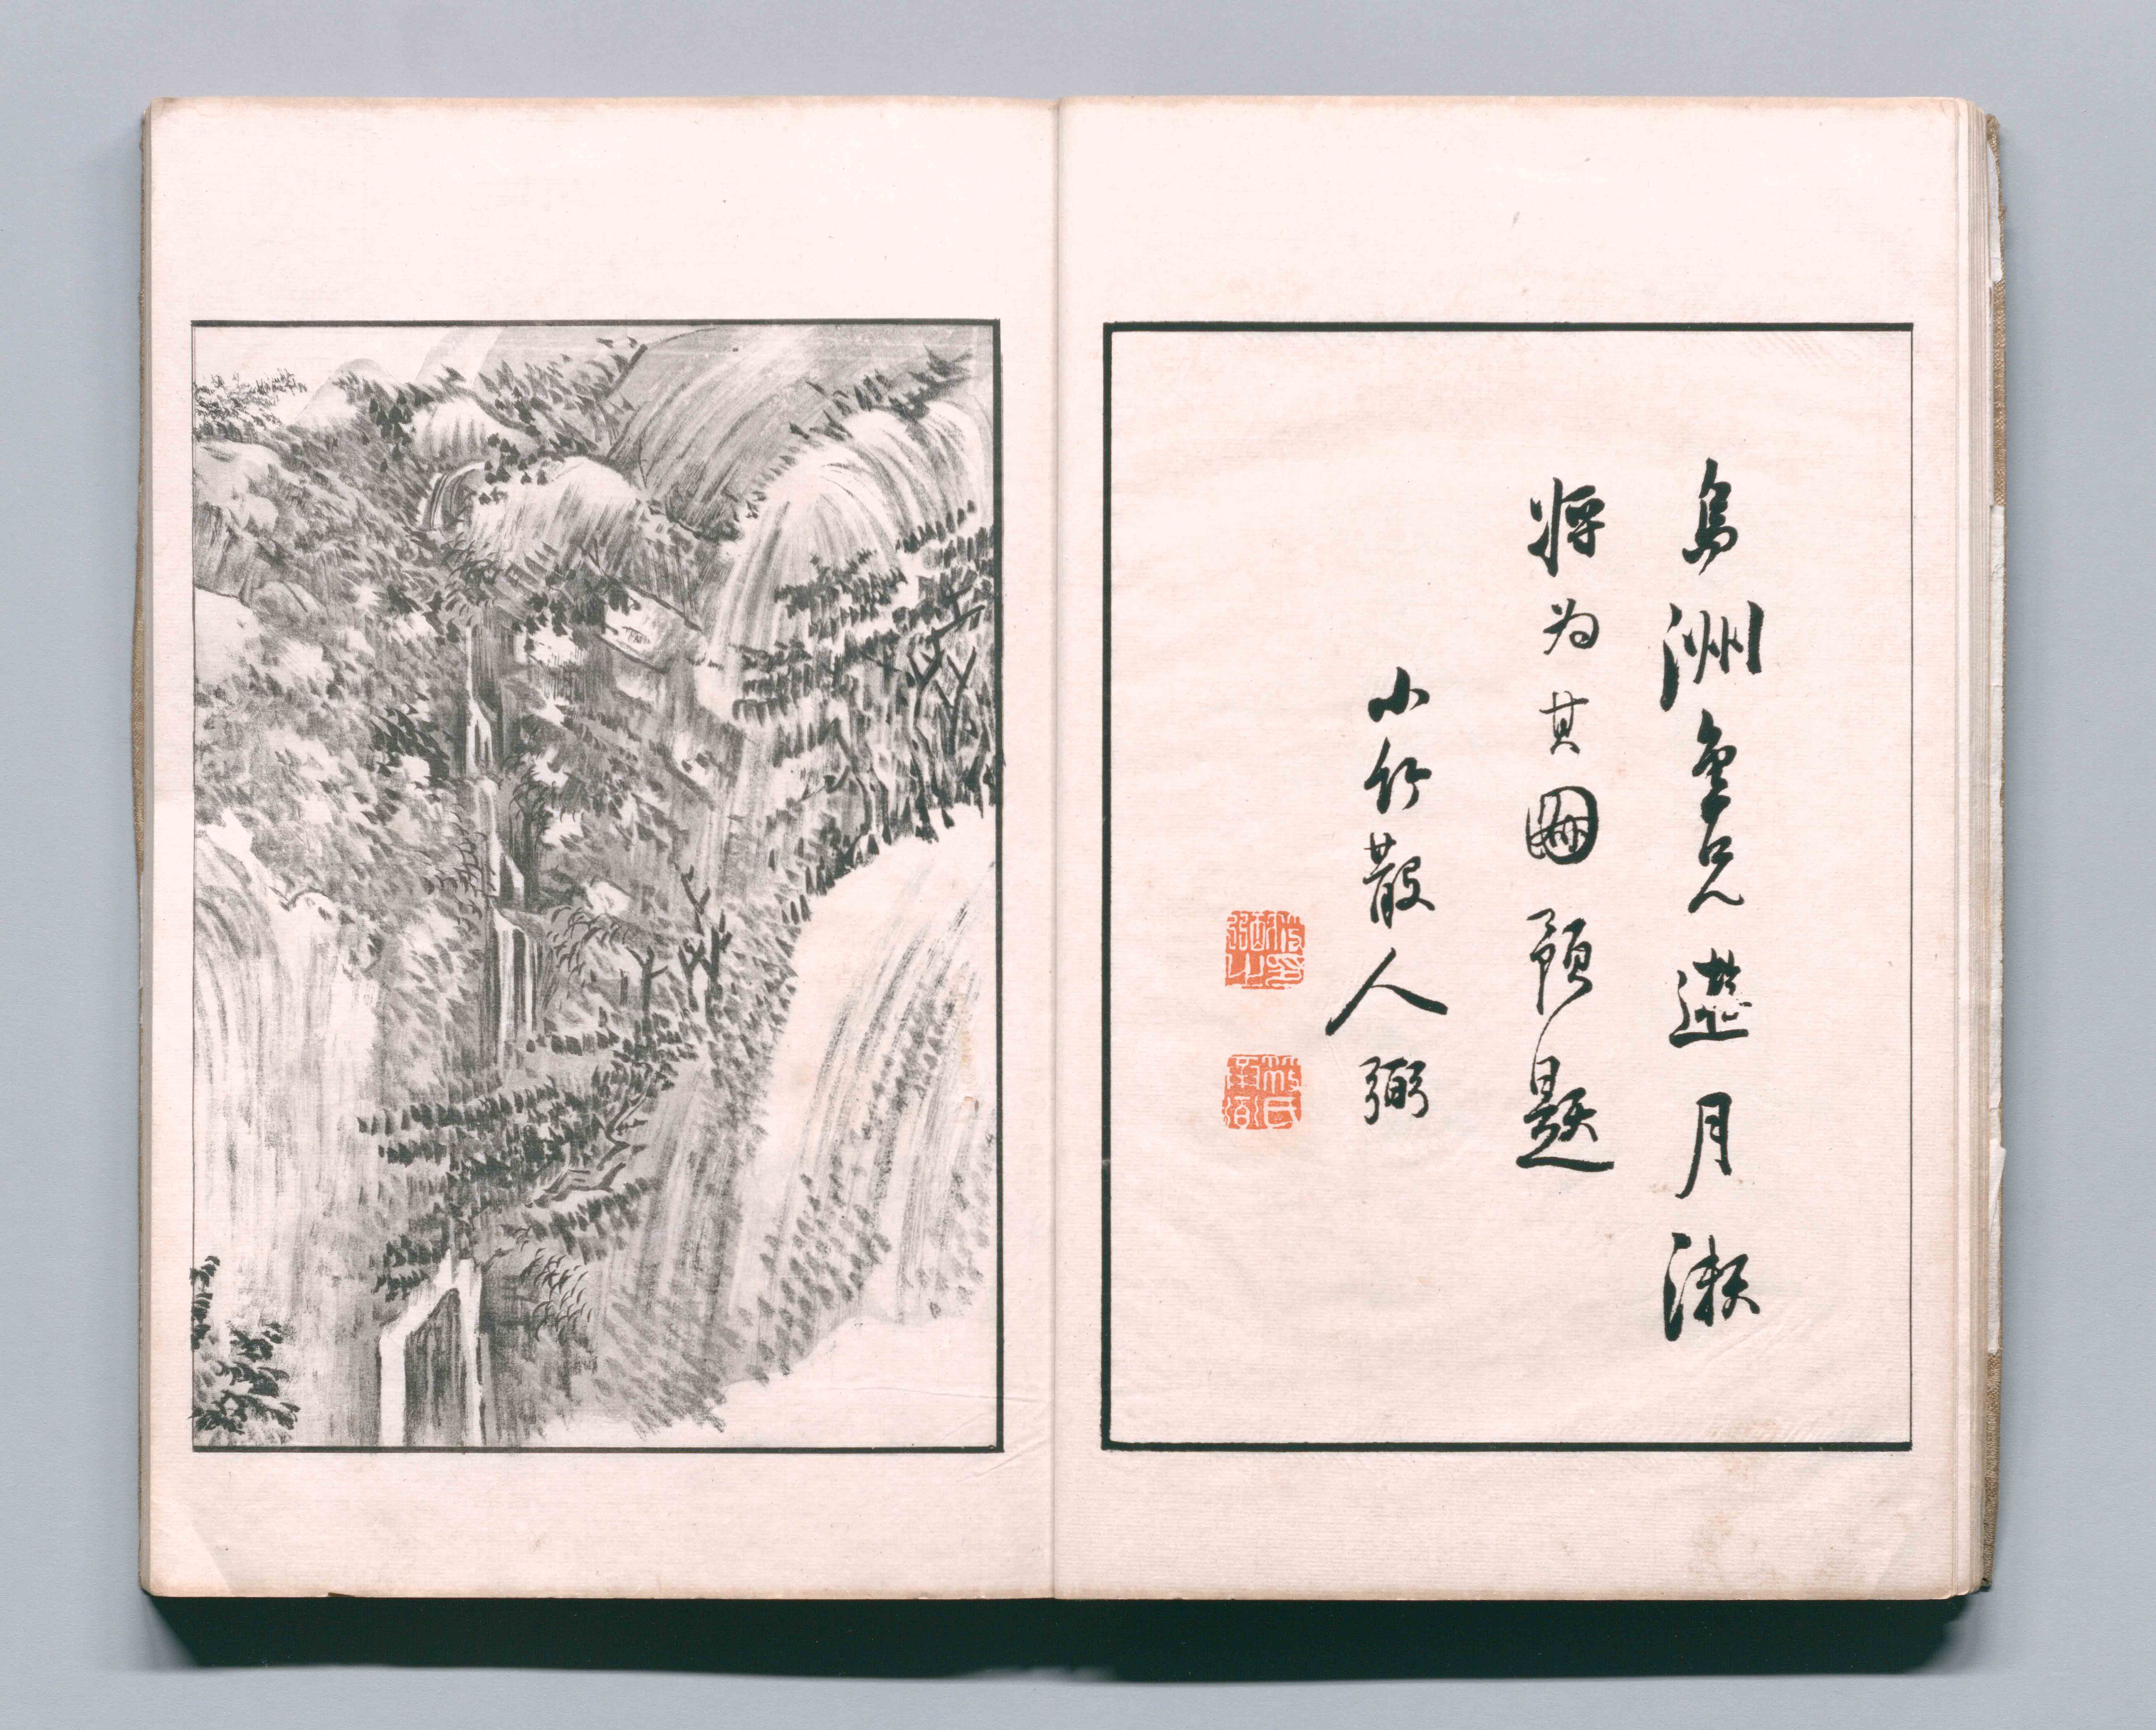 烏洲兄遊月瀬
將為其圖預題
小竹散人弼